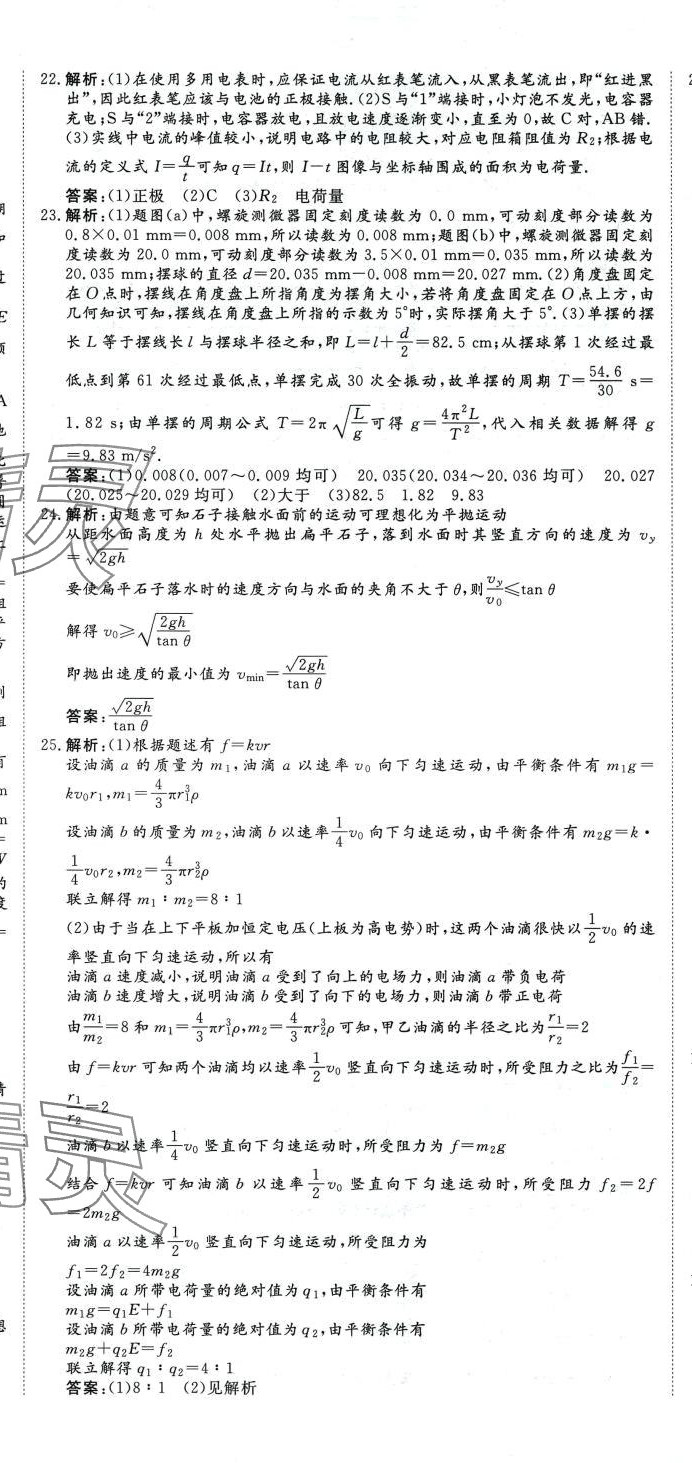 22.解析:(1)在使用多用电表时,应保证电流从红表笔流入,从黑表笔流出,即“红进黑
出”,因此红表笔应该与电池的正极接触.(2)S与“1”端接时,小灯泡不发光,电容器
充电;S与“2”端接时,电容器放电,且放电速度逐渐变小,直至为0,故C对,AB错.
(3)实线中电流的峰值较小,说明电路中的电阻较大,对应电阻箱阻值为R₂;根据电
流的定义式 I=q/t可知q=It,则 I-t图像与坐标轴围成的面积为电荷量.
答案:(1)正极 (2)C (3)R₂ 电荷量
23.解析:(1)题图(a)中,螺旋测微器固定刻度读数为 0.0 mm,可动刻度部分读数为
0.8×0.01 mm=0.008 mm,所以读数为 0.008 mm;题图(b)中,螺旋测微器固定刻
度读数为 20.0 mm,可动刻度部分读数为 3.5×0.01 mm=0.035 mm,所以读数为
20.035 mm;摆球的直径 d=20.035 mm-0.008 mm=20.027 mm.(2)角度盘固定
在O点时,摆线在角度盘上所指角度为摆角大小,若将角度盘固定在O点上方,由
几何知识可知,摆线在角度盘上所指的示数为 5°时,实际摆角大于 5°.(3)单摆的摆
长L等于摆线长l与摆球半径之和,即 L=l+d/2=82.5 cm;从摆球第 1 次经过最
低点到第 61 次经过最低点,单摆完成 30 次全振动,故单摆的周期 T=54.6/30 s=
1.82 s;由单摆的周期公式 T=2π√(L/g)可得 g=4π²L/T²,代入相关数据解得 g
=9.83 m/s².
答案:(1)0.008(0.007~0.009 均可) 20.035(20.034~20.036 均可) 20.027
(20.025~20.029 均可) (2)大于 (3)82.5 1.82 9.83
24.解析:由题意可知石子接触水面前的运动可理想化为平抛运动
从距水面高度为 h 处水平抛出扁平石子,落到水面时其竖直方向的速度为 v_y
=√(2gh)
要使扁平石子落水时的速度方向与水面的夹角不大于 θ,则v_y/v₀≤tan θ
解得 v₀≥√(2gh/tan θ)
即抛出速度的最小值为 v_min=√(2gh)/tan θ
答案:√(2gh)/tan θ
25.解析:(1)根据题述有 f=kvr
设油滴 a 的质量为 m₁,油滴 a 以速率 v₀ 向下匀速运动,由平衡条件有 m₁g=
kv₀r₁,m₁=4/3πr₁³ρ
设油滴 b 的质量为 m₂,油滴 b 以速率1/4v₀ 向下匀速运动,由平衡条件有 m₂g=k·
1/4v₀r₂,m₂=4/3πr₂³ρ
联立解得 m₁∶m₂=8∶1
(2)由于当在上下平板加恒定电压(上板为高电势)时,这两个油滴很快以1/2v₀ 的速
率竖直向下匀速运动,所以有
油滴 a 速度减小,说明油滴 a 受到了向上的电场力,则油滴 a 带负电荷
油滴 b 速度增大,说明油滴 b 受到了向下的电场力,则油滴 b 带正电荷
由m₁/m₂=8 和 m₁=4/3πr₁³ρ,m₂=4/3πr₂³ρ 可知,甲乙油滴的半径之比为r₁/r₂=2
由 f=kvr 可知两个油滴均以速率1/2v₀ 竖直向下匀速运动时,所受阻力之比为f₁/f₂=
r₁/r₂=2
油滴 b 以速率1/4v₀ 竖直向下匀速运动时,所受阻力为 f=m₂g
结合 f=kvr 可知油滴 b 以速率1/2v₀ 竖直向下匀速运动时,所受阻力 f₂=2f
=2m₂g
油滴 a 以速率1/2v₀ 竖直向下匀速运动,所受阻力为
f₁=2f₂=4m₂g
设油滴 a 所带电荷量的绝对值为 q₁,由平衡条件有
m₁g=q₁E+f₁
设油滴 b 所带电荷量的绝对值为 q₂,由平衡条件有
m₂g+q₂E=f₂
联立解得 q₁∶q₂=4∶1
答案:(1)8∶1 (2)见解析